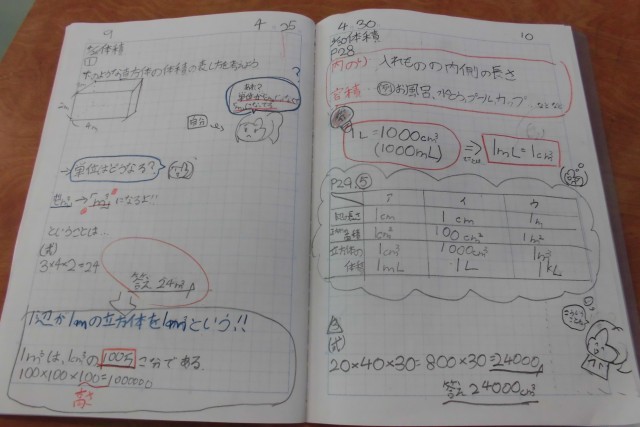 9
4.25
体積
1
次のような直方体の体積の表し方を考えよう
4m
自分
→単位はどうなる?
→「m³」になるよ!!
ということは…
(式)
3×4×2=24
答え 24m³
1辺が1mの立方体を1m³という!!
1m³は、1cm³の100万こ分である。
100×100×100=1000000
高さ
4.30
10
体積
P28
内のり 入れものの内側の長さ
容積 お風呂、水そう、プール、カップ…などなど
1L=1000cm³
(1000mL)
⇒
1mL=1cm³
P29 ⑤
ア イ ウ
1cm 1cm 1m
面積 1cm² 100cm² 1m²
立方体の 1cm³ 1000cm³ 1m³
体積 1mL 1L 1kL
(式)
20×40×30=800×30=24000
答え 24000cm³